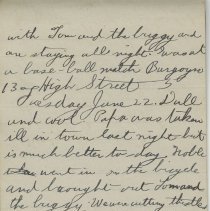 with Tom and the buggy and
are staying all night. Was at
a base-ball match Burgoyne
13 a High Street 5
Tuesday June 22. Dull
and cool. Papa was taken
ill in town last night but
is much better to-day. Noble
went in on the bicycle
and brought out Tom and
the buggy. We were cutting thistles